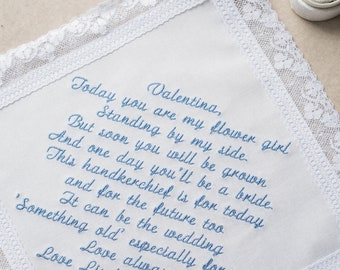 Valentina,
Today you are my flower girl
Standing by my side.
But soon you will be grown
And one day you'll be a bride.
This handkerchief is for today
and for the future too
It can be the wedding
'Something old' especially for
Love always
Love